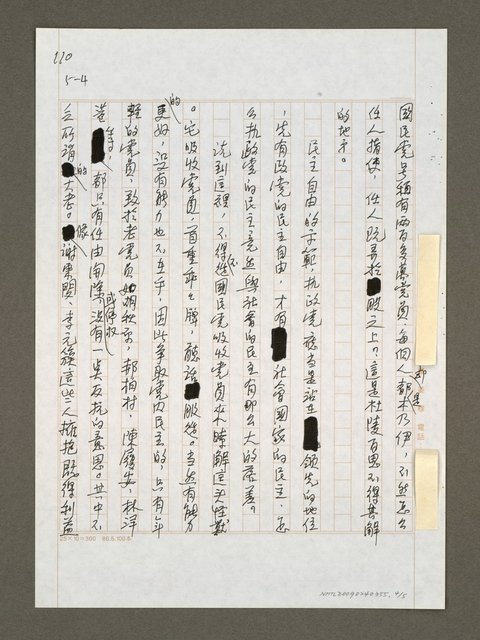 110
5-4
國民黨號稱有兩百多萬黨員，每個人都是木乃伊，不然怎么
任人指使，任人玩弄於股掌之上？這是杜陵百思不得其解
的地方。
民主自由的示範，執政黨應當是站在領先的地位
，先有政黨的民主自由，才有社會國家的民主，怎
么執政黨的民主竟然與社會的民主有那么大的落差。
說到這裡，不得不從國民黨吸收黨員來瞭解這次怪戲
。它吸收黨員，首重乖乖牌，聽話服從。當然有能力
更好的，沒有能力也不在乎，因此爭取黨內民主的，只有年
輕的黨員，致於老黨員如胡秋原，郝柏村，陳履安，林洋
港等，都只有任由開除或停权，沒有一點反抗的意思。其中不
乏所謂的大老。像謝東閔，李元簇這些人擁抱既得利益
25×10=300 86.5.100本
NMTL20090240355, 4/5